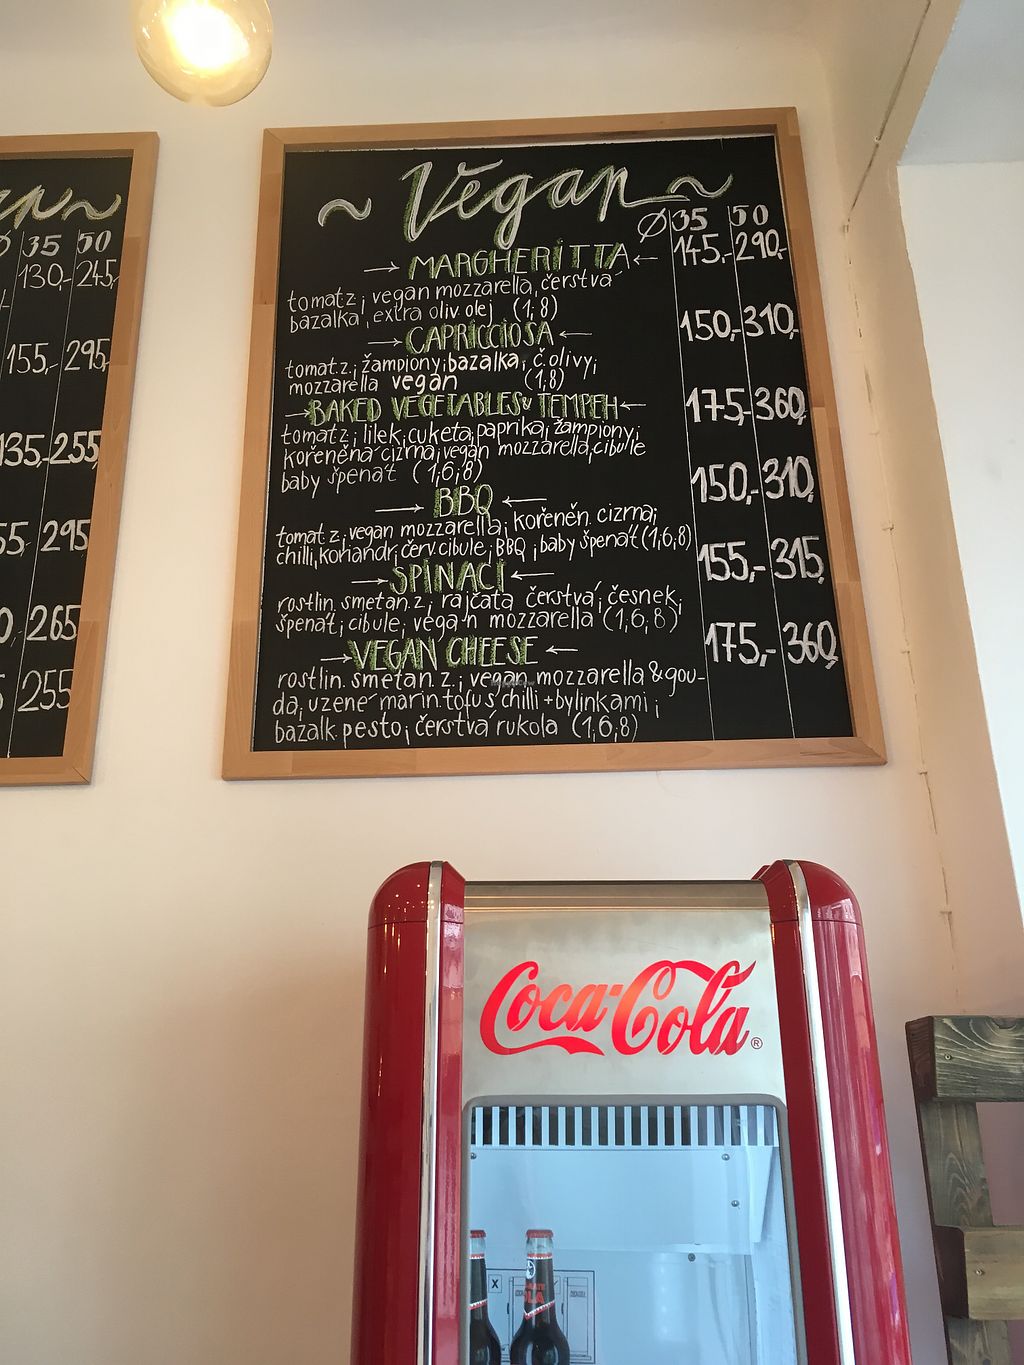 Ø 35 50
130,- 245,-
155,- 295,-
135,- 255,-
295,-
265
255
~ Vegan ~
Ø 35 50
→ MARGHERITTA ← 145,- 290,-
tomat z, vegan mozzarella, čerstvá
bazalka, extra oliv olej (1,8)
→ CAPRICCIOSA ← 150,- 310,-
tomat z, žampiony, bazalka, č. olivy,
mozzarella vegan (1,8)
→ BAKED VEGETABLES & TEMPEH ← 175,- 360,-
tomat z, lilek, cuketa, paprika, žampiony,
kořeněná cizrna, vegan mozzarella, cibule
baby špenát (1,6,8)
→ BBQ ← 150,- 310,-
tomat z, vegan mozzarella, kořeněn. cizrna,
chilli, koriandr, červ cibule, BBQ, baby špenát (1,6,8)
→ SPINACI ← 155,- 315,-
rostlin. smetan. z, rajčata čerstvá, česnek,
špenát, cibule, vegan mozzarella (1,6,8)
→ VEGAN CHEESE ← 175,- 360,-
rostlin. smetan. z., vegan mozzarella & gou-
da, uzené marin tofu s chilli + bylinkami,
bazalk pesto, čerstvá rukola (1,6,8)
Coca-Cola®
X